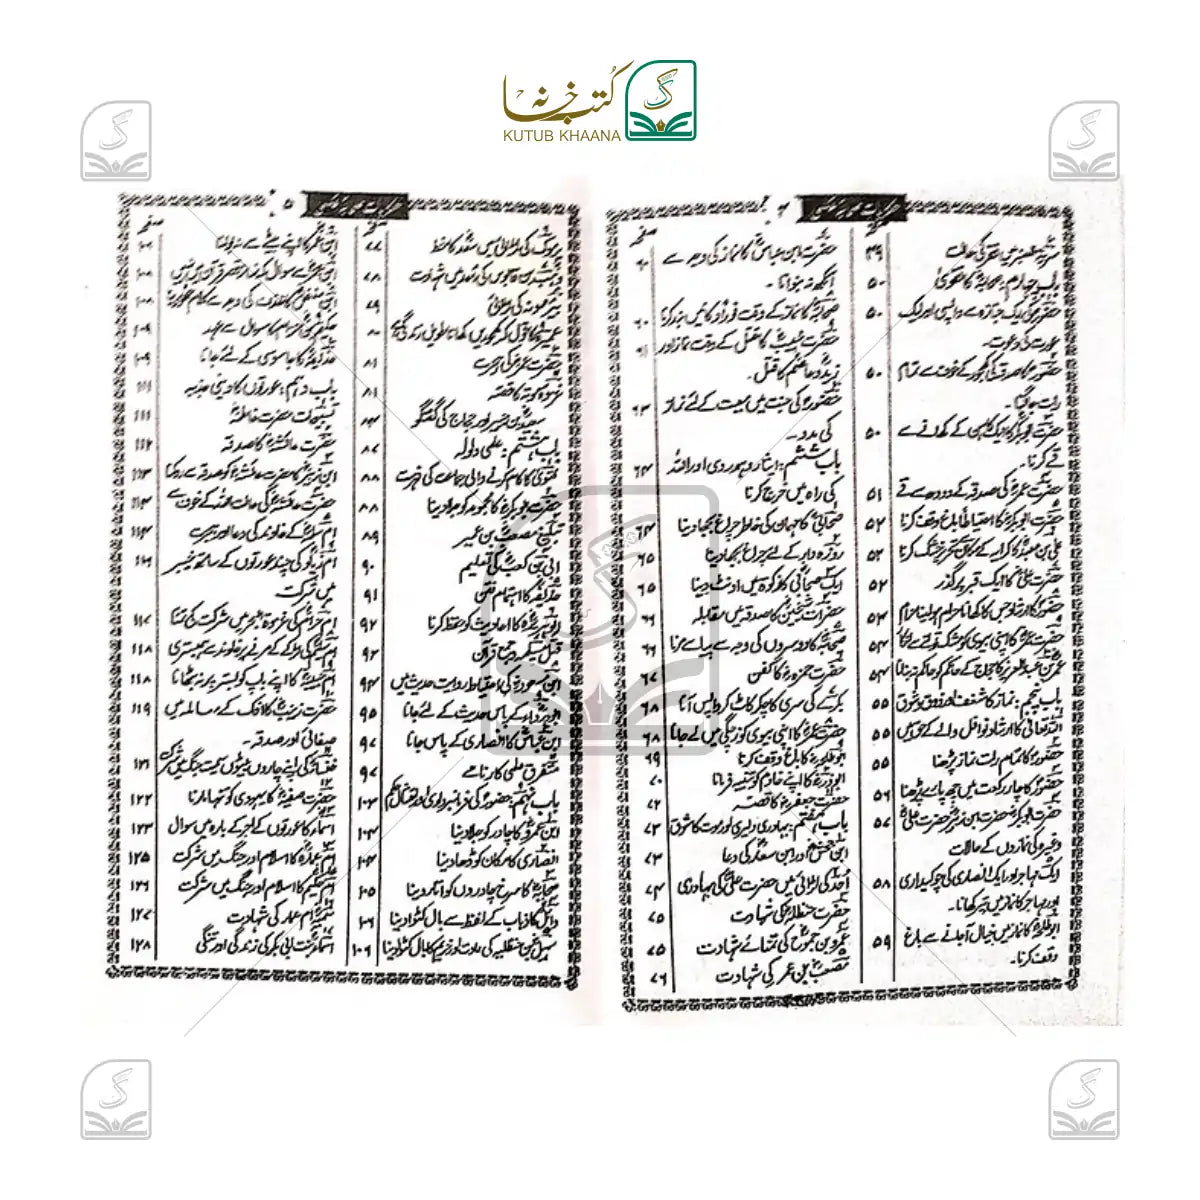 کتب خانہ
KUTUB KHAANA
۴
صفحہ
۴۹
باب چہارم: صحابہؓ کا تقویٰ ۵۰
۵۰
عورت کی دعوت۔
۵۰
رات جاگنا۔
۵۰
قے کرنا۔
حضرت عمرؓ کی صدقہ کے دودھ سے قے ۵۱
حضرت ابوبکرؓ کا احتیاطاً باغ وقف کرنا ۵۲
علی بن معبدؒ کا کرایہ کے مکان سے تحریر خشک کرنا ۵۲
حضرت علیؓ کا ایک قبر پر گذر ۵۲
حضورؐ کا ارشاد جس کا کھانا حرام ہو لینا حرام ۵۳
۵۴
۵۴
باب پنجم: نماز کا شغف اور ذوق و شوق ۵۵
اللہ تعالیٰ کا ارشاد نوافل والے کے حق میں ۵۵
حضورؐ کا تمام رات نماز پڑھنا ۵۵
حضورؐ کا چار رکعت میں چھ پارے پڑھنا ۵۶
حضرت ابوبکرؓ حضرت ابن زبیرؓ حضرت علیؓ ۵۷
وغیرہ کی نمازوں کے حالات
ایک مہاجر اور ایک انصاری کی چوکیداری ۵۸
اور مہاجر کا نماز میں تیر کھانا۔
ابوطلحہؓ کا نماز میں خیال آجانے سے باغ ۵۹
وقف کرنا۔
صفحہ
حضرت ابن عباسؓ کا نماز کی وجہ سے ۶۰
آنکھ نہ بنوانا۔
صحابہؓ کا نماز کے وقت فوراً دکانیں بند کرنا ۶۰
حضرت خبیبؓ کا قتل کے وقت نماز اور ۶۱
زیدؓ و عاصمؓ کا قتل۔
حضورؐ کی جنت میں معیت کے لئے نماز ۶۳
کی مدد۔
باب ششم: ایثار و ہمدردی اور اللہ ۶۴
کی راہ میں خرچ کرنا
صحابیؓ کا مہمان کی خاطر چراغ بجھا دینا ۶۴
روزہ دار کے لئے چراغ بجھا دینا ۶۵
ایک صحابیؓ کا زکوٰۃ میں اونٹ دینا ۶۵
حضرات شیخینؓ کا صدقہ میں مقابلہ ۶۶
صحابہؓ کا دوسروں کی وجہ سے پیاسے مرنا ۶۶
حضرت حمزہؓ کا کفن ۶۷
بکرے کی سری کا چکر کاٹ کر واپس آنا ۶۸
حضرت عمرؓ کا اپنی بیوی کو زچگی میں لے جانا ۶۸
ابوطلحہؓ کا باغ وقف کرنا ۶۹
ابوذرؓ کا اپنے خادم کو تنبیہ فرمانا ۷۰
حضرت جعفرؓ کا قصہ ۷۲
باب ہفتم: بہادری دلیری اور موت کا شوق ۷۳
ابن جحشؓ اور ابن سعدؓ کی دعا ۷۳
اُحد کی لڑائی میں حضرت علیؓ کی بہادری ۷۴
حضرت حنظلہؓ کی شہادت ۷۵
عمرو بن جموحؓ کی تمنائے شہادت ۷۵
مصعبؓ بن عمیر کی شہادت ۷۶
۵
صفحہ
یرموک کی لڑائی میں سعدؓ کا خط ۷۷
وہبؓ بن قابوس کی احد میں شہادت ۷۸
بیر معونہ کی لڑائی ۷۹
عمیرؓ کا قول کہ کھجوریں کھانا طویل زندگی ہے ۸۰
حضرت عمرؓ کی ہجرت ۸۱
غزوہ موتہ کا قصہ ۸۱
سعیدؒ بن جبیر اور حجاج کی گفتگو ۸۴
باب ہشتم: علمی ولولہ ۸۷
فتویٰ کا کام کرنے والی جماعت کی فہرست ۸۸
حضرت ابوبکرؓ کا مجموعہ کو جلا دینا ۸۸
تبلیغ مصعبؓ بن عمیر ۸۹
ابی بن کعبؓ کی تعلیم ۹۰
حذیفہؓ کا اہتمام فتن ۹۱
ابوہریرہؓ کا احادیث کو حفظ کرنا ۹۲
قتل مسیلمہ و جمع قرآن ۹۳
ابن مسعودؓ کی احتیاط روایت حدیث میں ۹۴
ابودرداءؓ کے پاس حدیث کے لئے جانا ۹۵
ابن عباسؓ کا انصاری کے پاس جانا ۹۷
متفرق علمی کارنامے ۹۷
۱۰۳
ابن عمروؓ کا چادر کو جلا دینا ۱۰۴
انصاریؓ کا مکان کو ڈھا دینا ۱۰۴
صحابہؓ کا سرخ چادروں کو اتار دینا ۱۰۵
وائلؓ کا ذباب کے لفظ سے بال کٹوا دینا ۱۰۶
سہیلؓ بن حنظلیہ کی عادت اور خریمؓ کا بال کٹوا دینا ۱۰۶
صفحہ
ابن عمرؓ کا اپنے بیٹے سے نہ بولنا ۱۰۷
ابن عمرؓ سے سوال کہ نماز قصر قرآن میں نہیں ۱۰۸
۱۰۸
حکیمؓ بن حزام کا سوال سے عہد ۱۰۹
حذیفہؓ کا جاسوسی کے لئے جانا ۱۰۹
باب دہم: عورتوں کا دینی جذبہ ۱۱۱
تسبیحات حضرت فاطمہؓ ۱۱۱
حضرت عائشہؓ کا صدقہ ۱۱۲
ابن زبیرؓ کا حضرت عائشہؓ کو صدقہ سے روکنا ۱۱۳
حضرت عائشہؓ کی حالت اللہ کے خوف سے ۱۱۳
ام سلمہؓ کے خاوند کی دعا اور ہجرت ۱۱۴
ام زیادؓ کی چند عورتوں کے ساتھ خیبر ۱۱۶
میں شرکت
ام حرامؓ کی غزوۃ البحر میں شرکت کی تمنا ۱۱۷
ام سلیمؓ کی لڑکے کے مرنے پر خاوند سے ہمبستری ۱۱۸
ام حبیبہؓ کا اپنے باپ کو بستر پر نہ بٹھانا ۱۱۸
حضرت زینبؓ کا افک کے معاملہ میں ۱۱۹
صفائی اور صدقہ۔
خنساءؓ کی اپنے چاروں بیٹوں سمیت جنگ میں شرکت ۱۲۱
حضرت صفیہؓ کا یہودی کو تنہا مارنا ۱۲۲
اسماءؓ کا عورتوں کے اجر کے بارہ میں سوال ۱۲۳
ام عمارہؓ کا اسلام اور جنگ میں شرکت ۱۲۵
ام حکیمؓ کا اسلام اور جنگ میں شرکت ۱۲۶
سمیہؓ ام عمار کی شہادت ۱۲۷
اسماءؓ بنت ابی بکر کی زندگی اور تنگی ۱۲۸